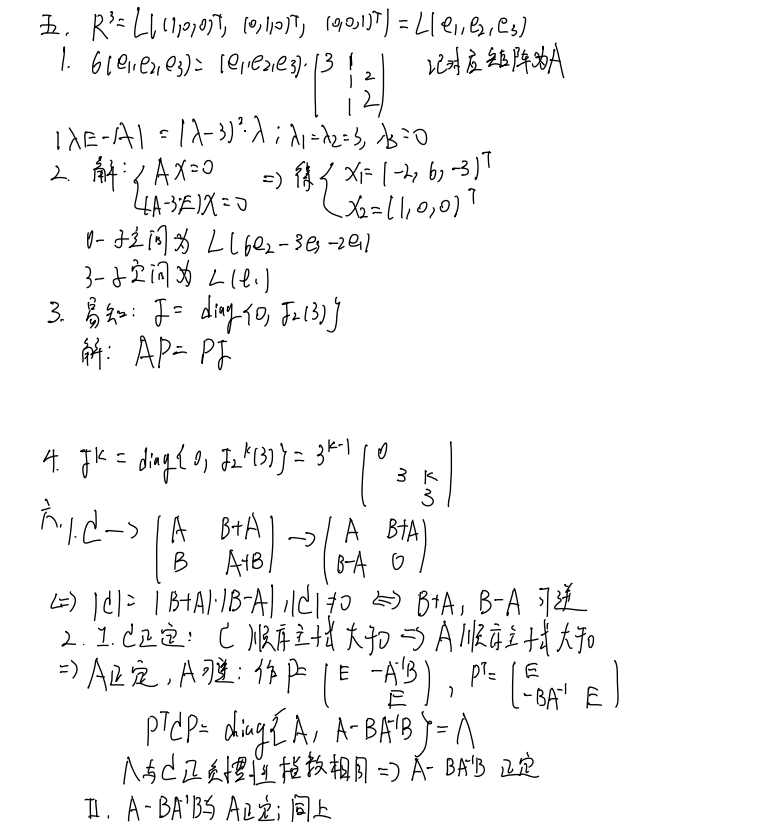 五. R³=L((1,0,0)ᵀ, (0,1,0)ᵀ, (0,0,1)ᵀ)=L(e₁,e₂,e₃)
1. σ(e₁,e₂,e₃)=(e₁,e₂,e₃)·(3 1 1 2 1 2) 记对应矩阵为A
|λE-A|=(λ-3)²·λ; λ₁=λ₂=3, λ₃=0
2. 解: {AX=0 (A-3E)X=0 => 得 {X₁=(-2, 6, -3)ᵀ X₂=(1,0,0)ᵀ
0-子空间为 L(6e₂-3e₃-2e₁)
3-子空间为 L(e₁)
3. 易知: J= diag{0, J₂(3)}
解: AP=PJ
4. Jᵏ = diag{0, J₂ᵏ(3)}=3ᵏ⁻¹(0 3 k 3)
六. 1. C -> (A B+A B A+B) -> (A B+A B-A 0)
<=> |C|=|B+A|·|B-A|, |C|≠0 <=> B+A, B-A 可逆
2. I. C正定: C顺序主式大于0 => A顺序主式大于0
=> A正定, A可逆: 作P=(E -A⁻¹B E), Pᵀ=(E -BA⁻¹ E)
PᵀCP= diag{A, A-BA⁻¹B}=Λ
Λ与C正负惯性指数相同=> A-BA⁻¹B 正定
II. A-BA⁻¹B与A正定; 同上